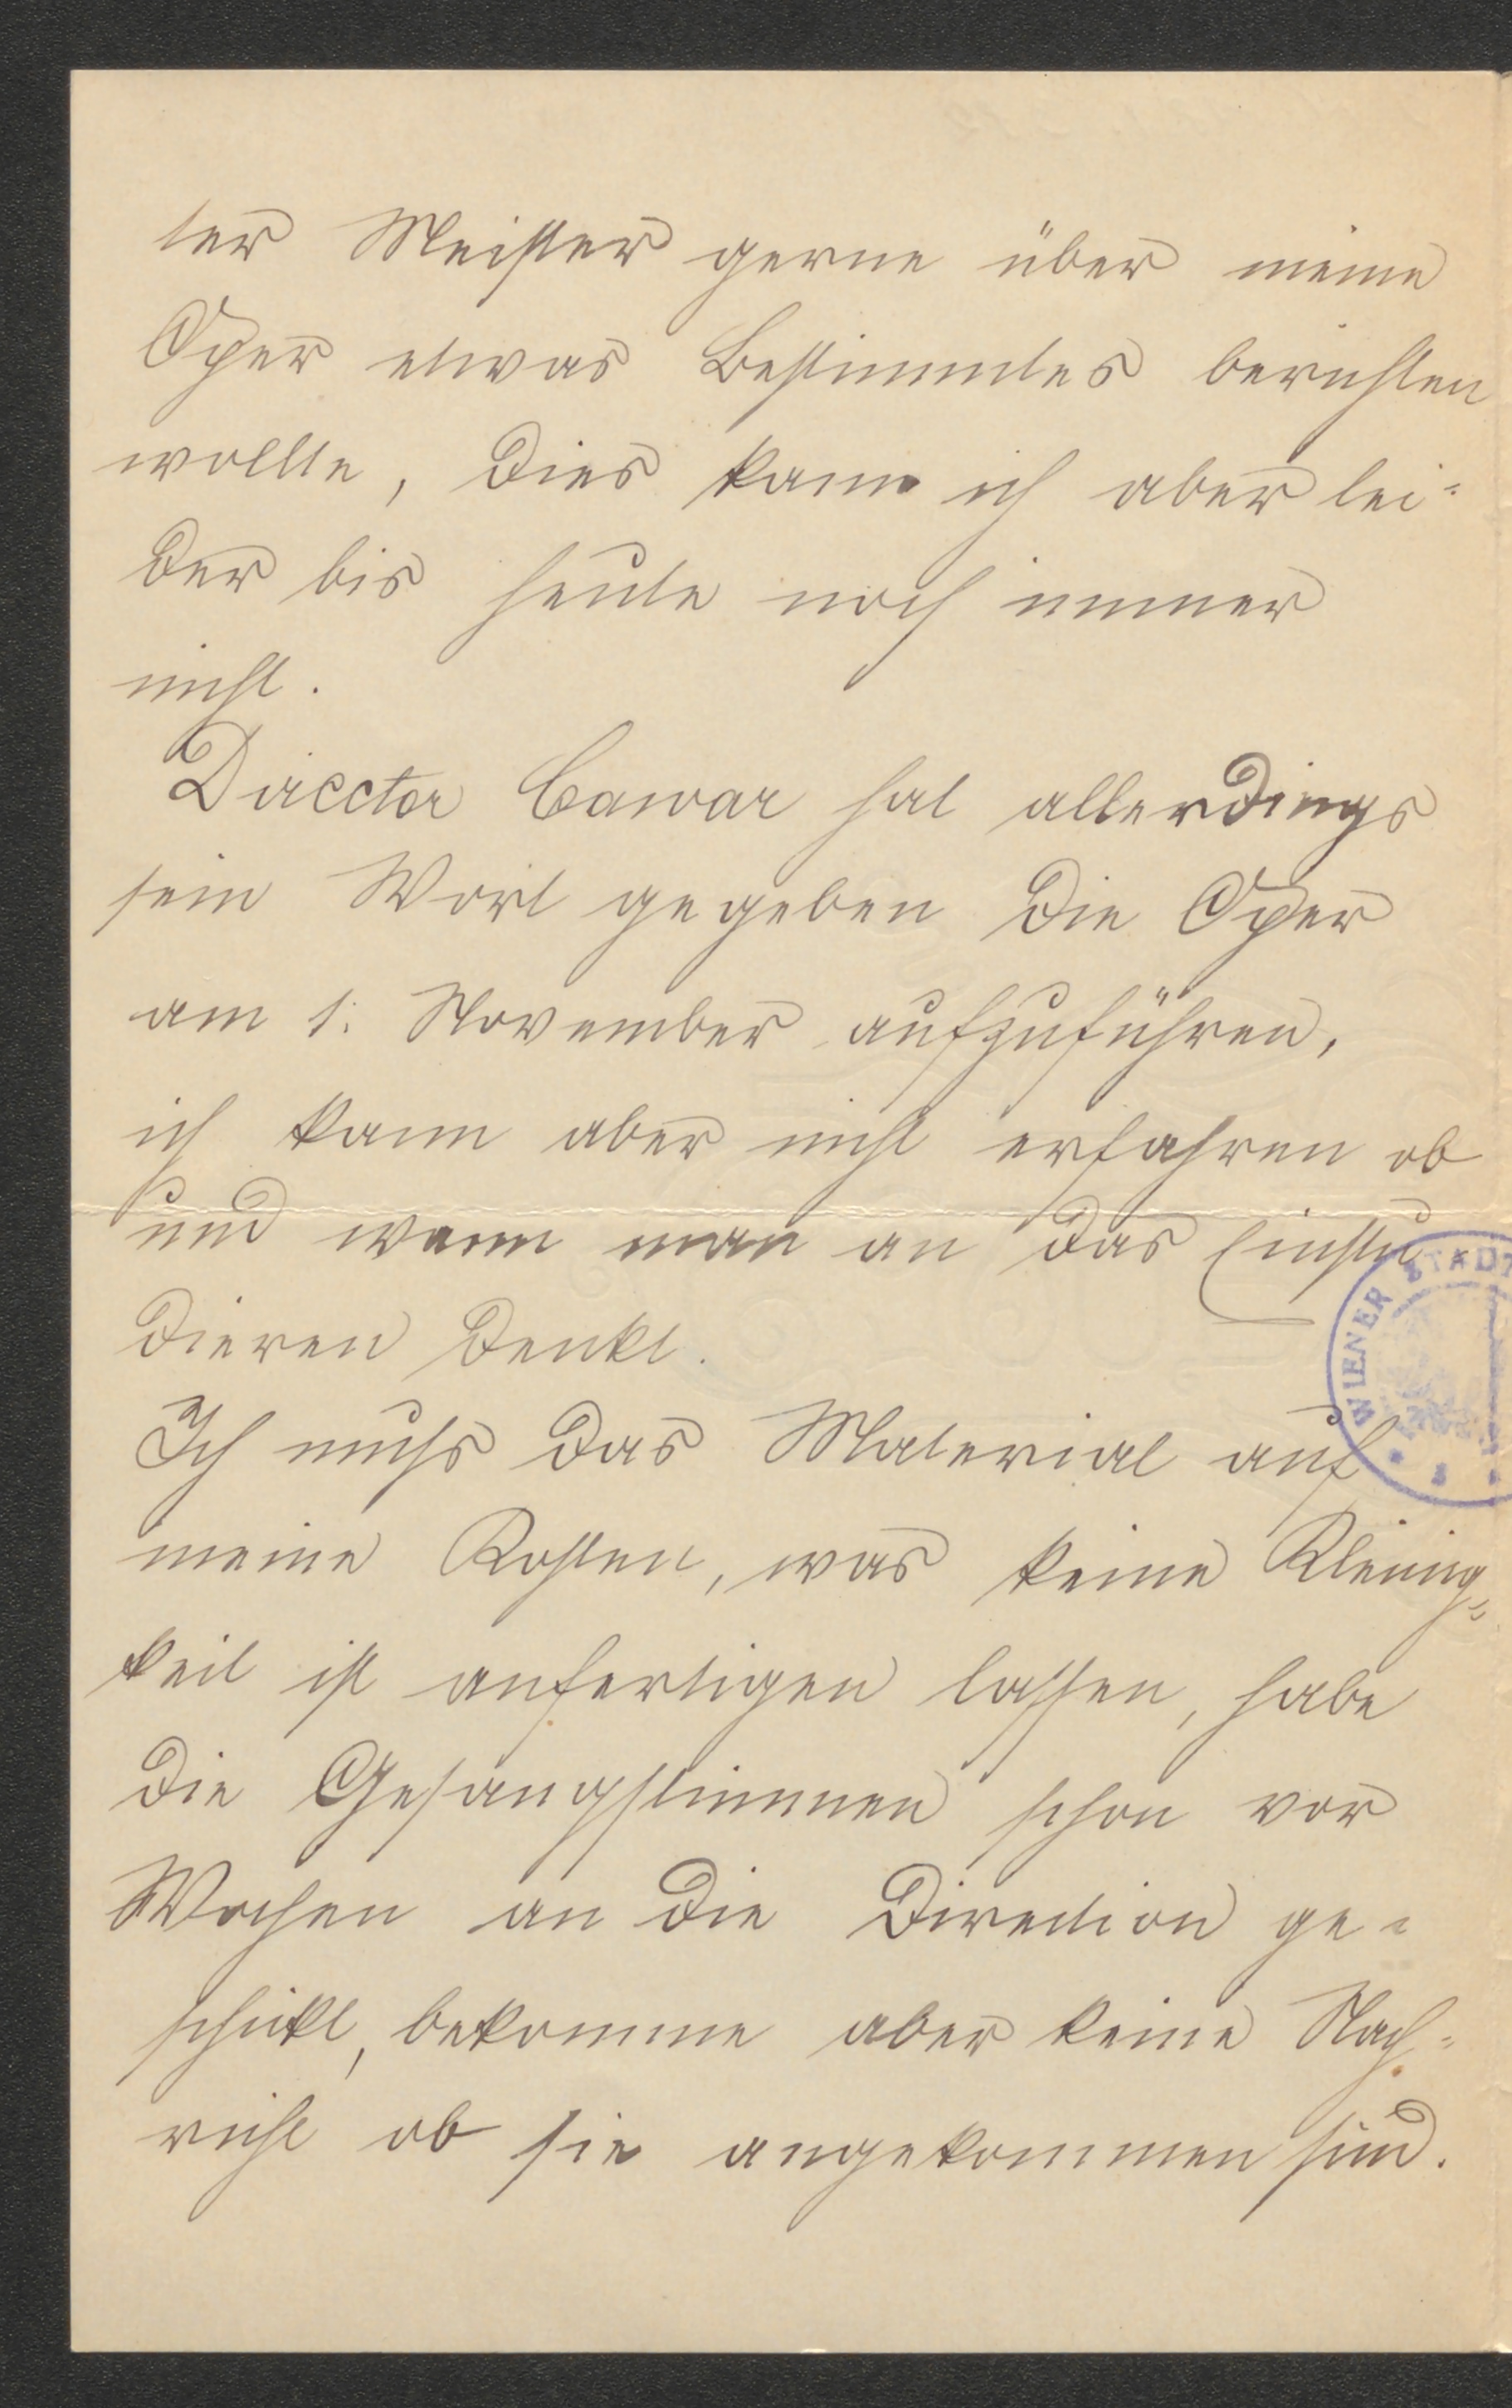 ter Meister gerne über meine
Oper etwas Bestimmtes berichten
wollte, dies kann ich aber lei-
der bis heute noch immer
nicht.
Director Cavar hat allerdings
sein Wort gegeben die Oper
am 1. November aufzuführen,
ich kann aber nicht erfahren ob
und wann man an das Einstu
dieren denkt.
WIENER STADT
Ich muss das Material auf
meine Kosten, was keine Kleinig-
keit ist anfertigen lassen, habe
die Gesangstimmen schon vor
Wochen an die Direction ge-
schickt, bekomme aber keine Nach-
richt ob sie angekommen sind.